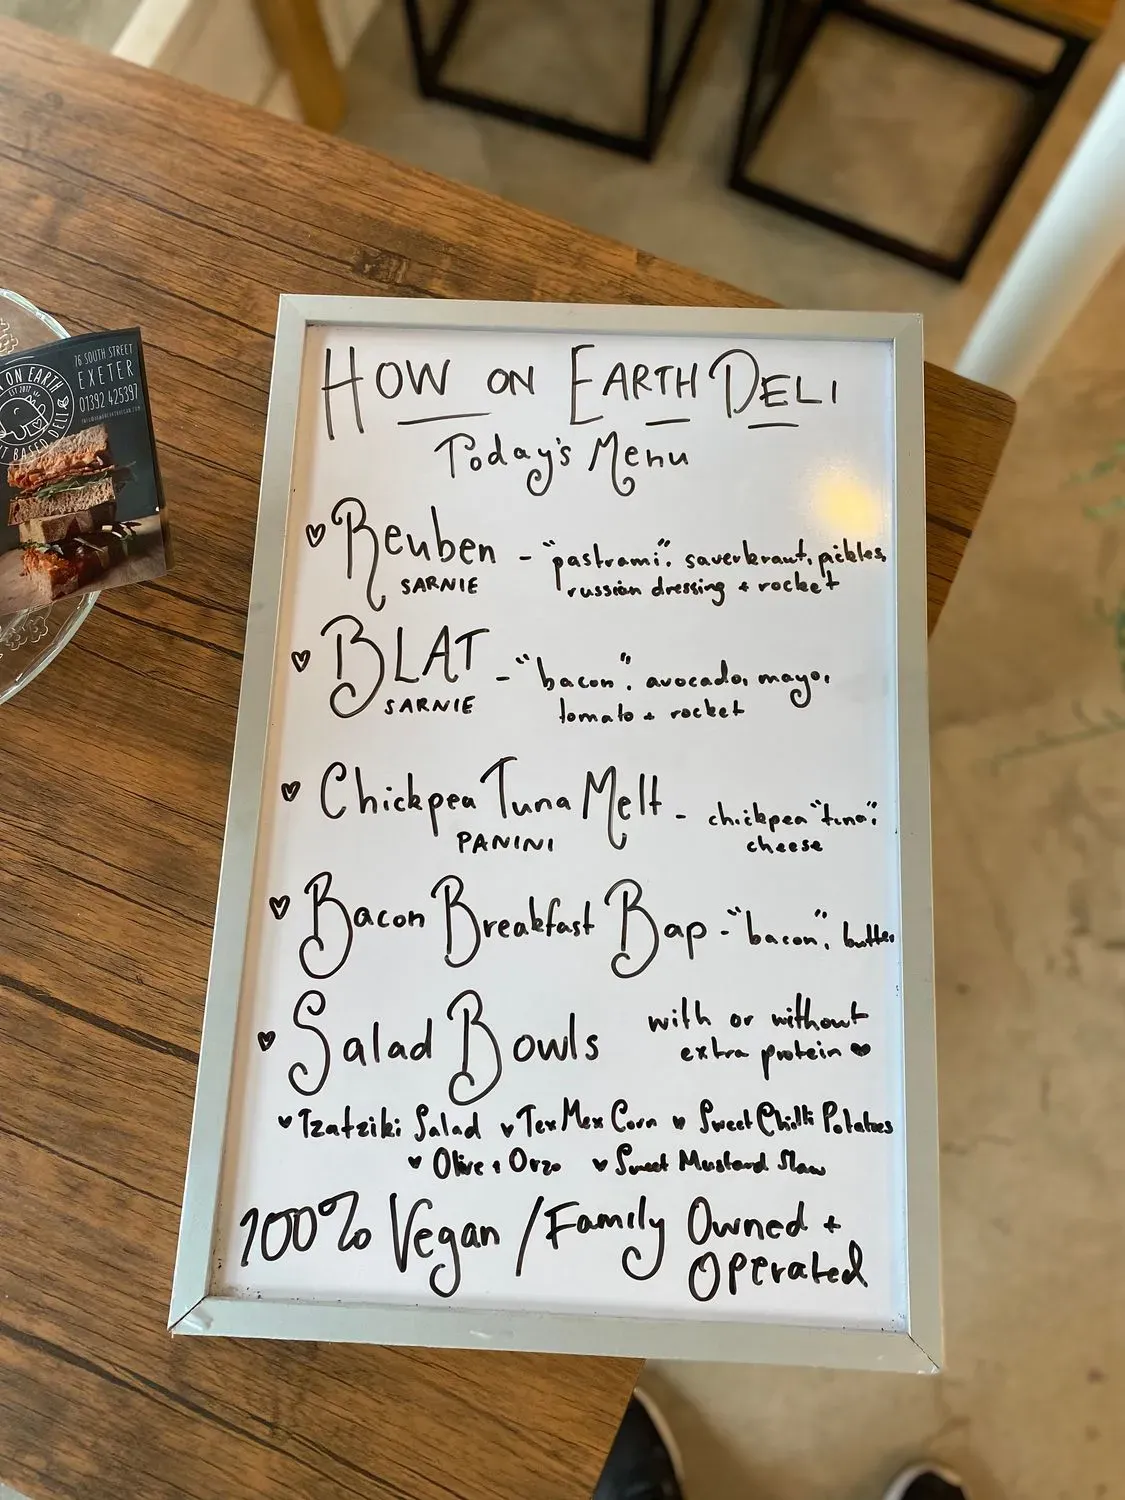 HOW ON EARTH DELI
Today's Menu
Reuben - "pastrami", sauerkraut, pickles,
SARNIE russian dressing + rocket
BLAT - "bacon", avocado, mayo,
SARNIE tomato + rocket
Chickpea Tuna Melt - chickpea "tuna",
PANINI cheese
Bacon Breakfast Bap - "bacon", butter
Salad Bowls with or without
extra protein
Tzatziki Salad Tex Mex Corn Sweet Chilli Potatoes
Olive + Orzo Sweet Mustard Slaw
100% Vegan / Family Owned +
Operated
76 SOUTH STREET
EXETER
01392 425397
ON EARTH
BASED DELI